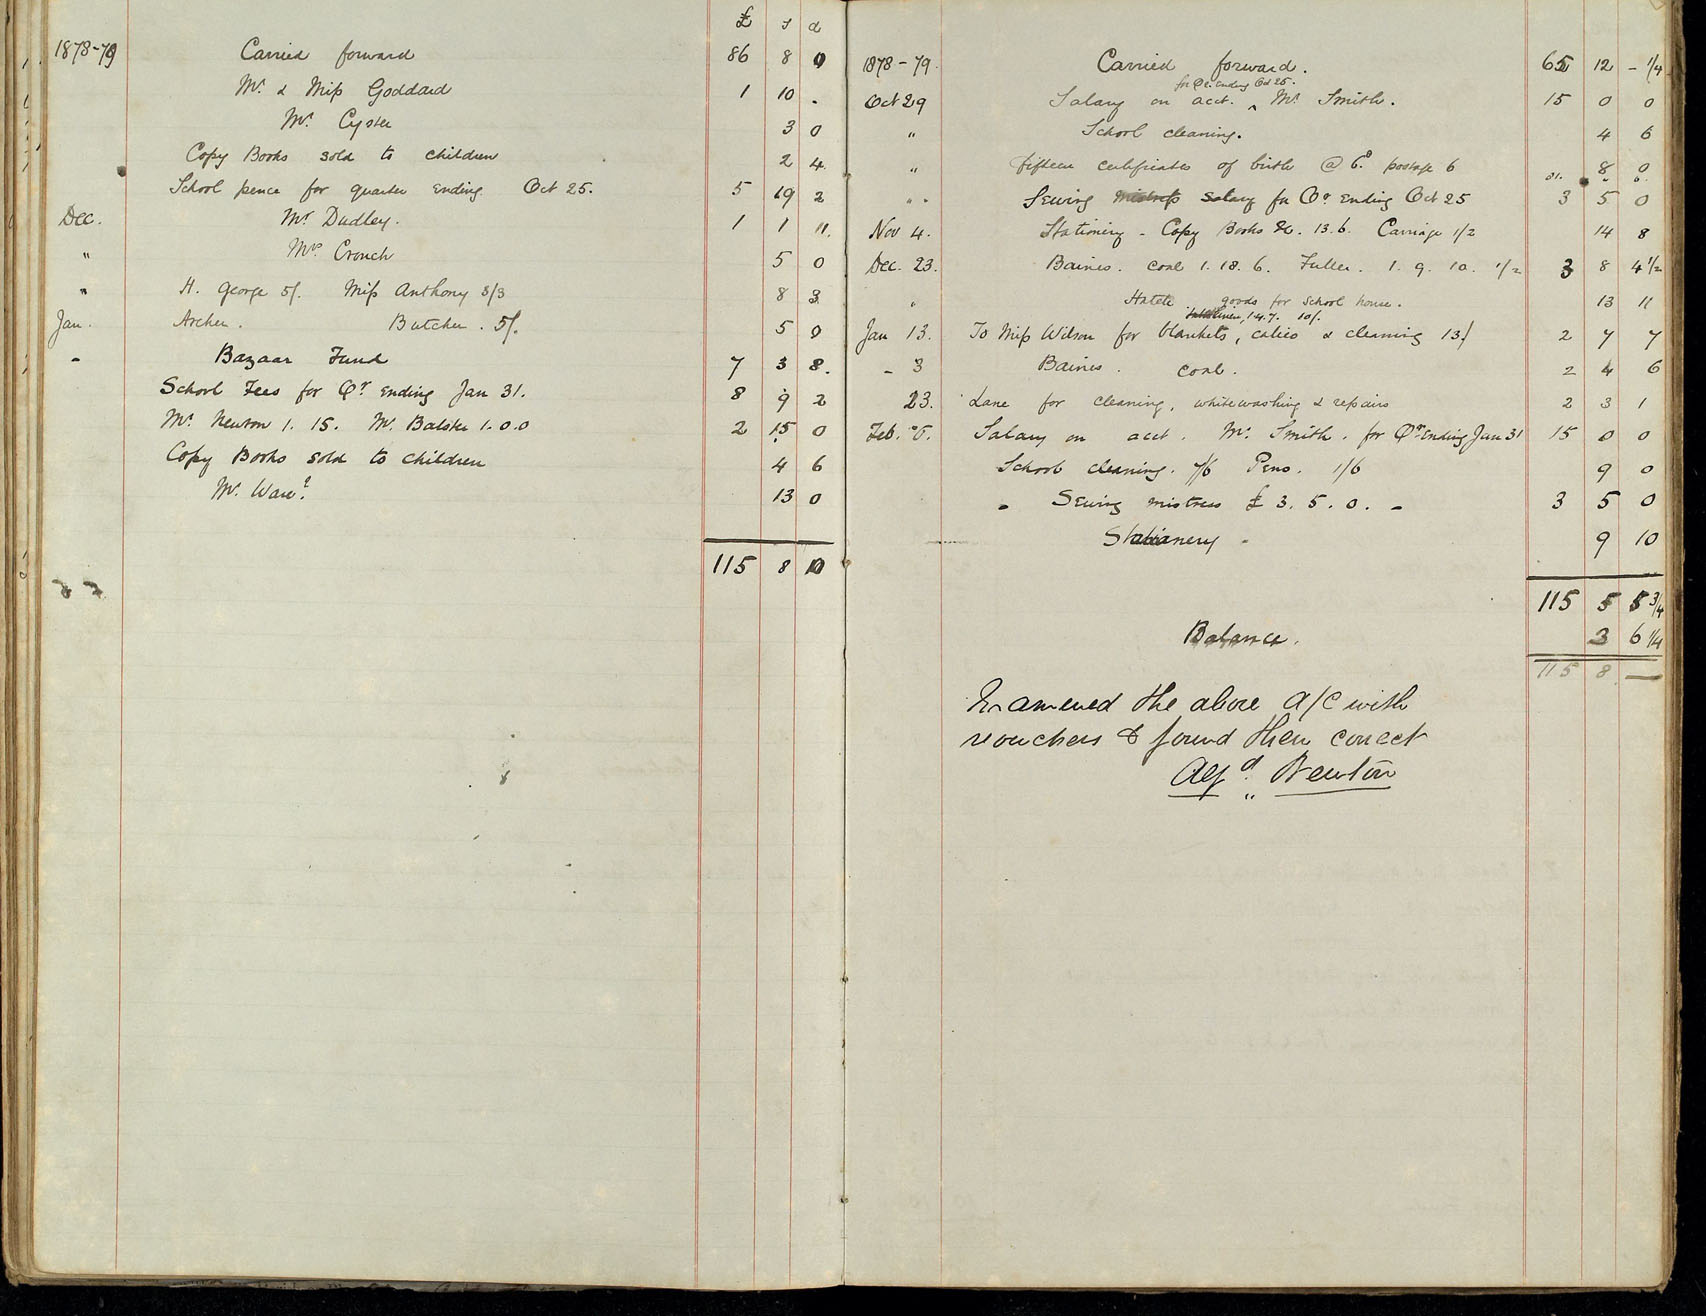 £ s d
1878-79 Carried forward 86 8 0
Mr. & Miss Goddard 1 10 .
Mr. Cyster 3 0
Copy Books sold to children 2 4
School pence for quarter ending Oct 25. 5 19 2
Dec. Mr Dudley. 1 1 11.
" Mrs Crouch 5 0
" H. George 5/. Miss Anthony 3/3 8 3
Jan. Archer. Butcher. 5/. 5 0
- Bazaar Fund 7 3 8.
School Fees for Qr ending Jan 31. 8 9 2
Mr. Newton 1. 15. Mr. Balster 1.0.0 2 15 0
Copy Books sold to children 4 6
Mr. Ware? 13 0
115 8 0
1878-79 Carried forward. 65 12 - 1/4
for Qr. ending Oct 25.
Oct 29 Salary on acct. ^ Mr Smith. 15 0 0
" School cleaning. 4 6
" fifteen certificates of birth @ 6d postage 6 8 0
" " Sewing mistress salary for Qr ending Oct 25 3 5 0
Nov 4. Stationery - Copy Books &c. 13.6. Carriage 1/2 14 8
Dec. 23. Baines. coal 1.18.6. Fuller. 1.9.10.1/2 3 8 4 1/2
" goods for school house. 13 11
1.4.7. 10/.
Jan 13. To Miss Wilson for blankets, calico & cleaning 13/ 2 7 7
- 3 Baines. coal. 2 4 6
23. Lane for cleaning, whitewashing & repairs 2 3 1
Feb. 5. Salary on acct. Mr. Smith. for Qr ending Jan 31 15 0 0
School cleaning. 7/6 Pens. 1/6 9 0
- Sewing mistress £3.5.0. - 3 5 0
Stationery - 9 10
115 5 5 3/4
Balance. 3 6 1/4
115 8 —
Examened the above a/c with
vouchers & found them correct
Alfd. Newton